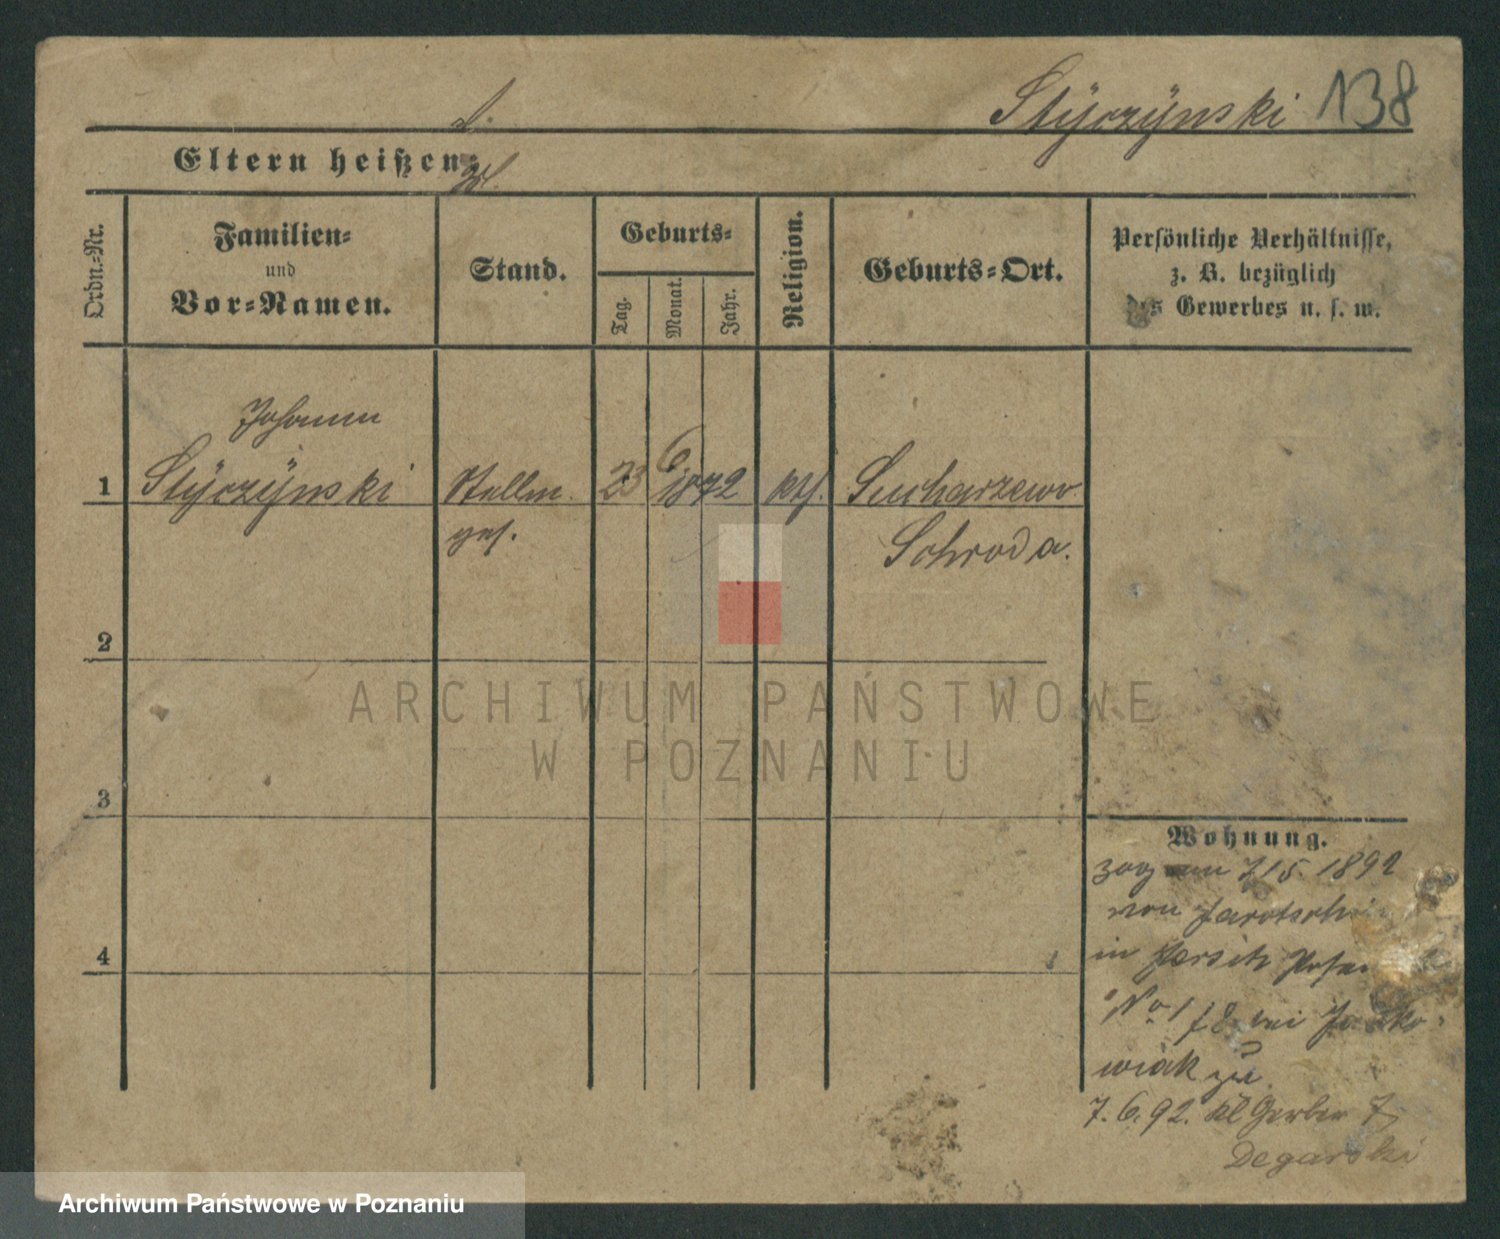 Stÿczÿnski 138
Eltern heißen:
Ordn.-Nr.
Familien-
und
Vor-Namen.
Stand.
Geburts-
Tag.
Monat.
Jahr.
Religion.
Geburts-Ort.
Persönliche Verhältnisse,
z. B. bezüglich
des Gewerbes u. s. w.
Johann
1 Stÿczÿnski Stellm. 23 6 1872 kth. Sucharzewo
ges. Schroda.
2
ARCHIWUM PAŃSTWOWE
W POZNANIU
3
4
Wohnung.
zog am 7/5 1892
von Jarotschin
in Jersitz
No 178 bei
wiak zu
7.6.92. Kl Gerber 7
Degarski
Archiwum Państwowe w Poznaniu